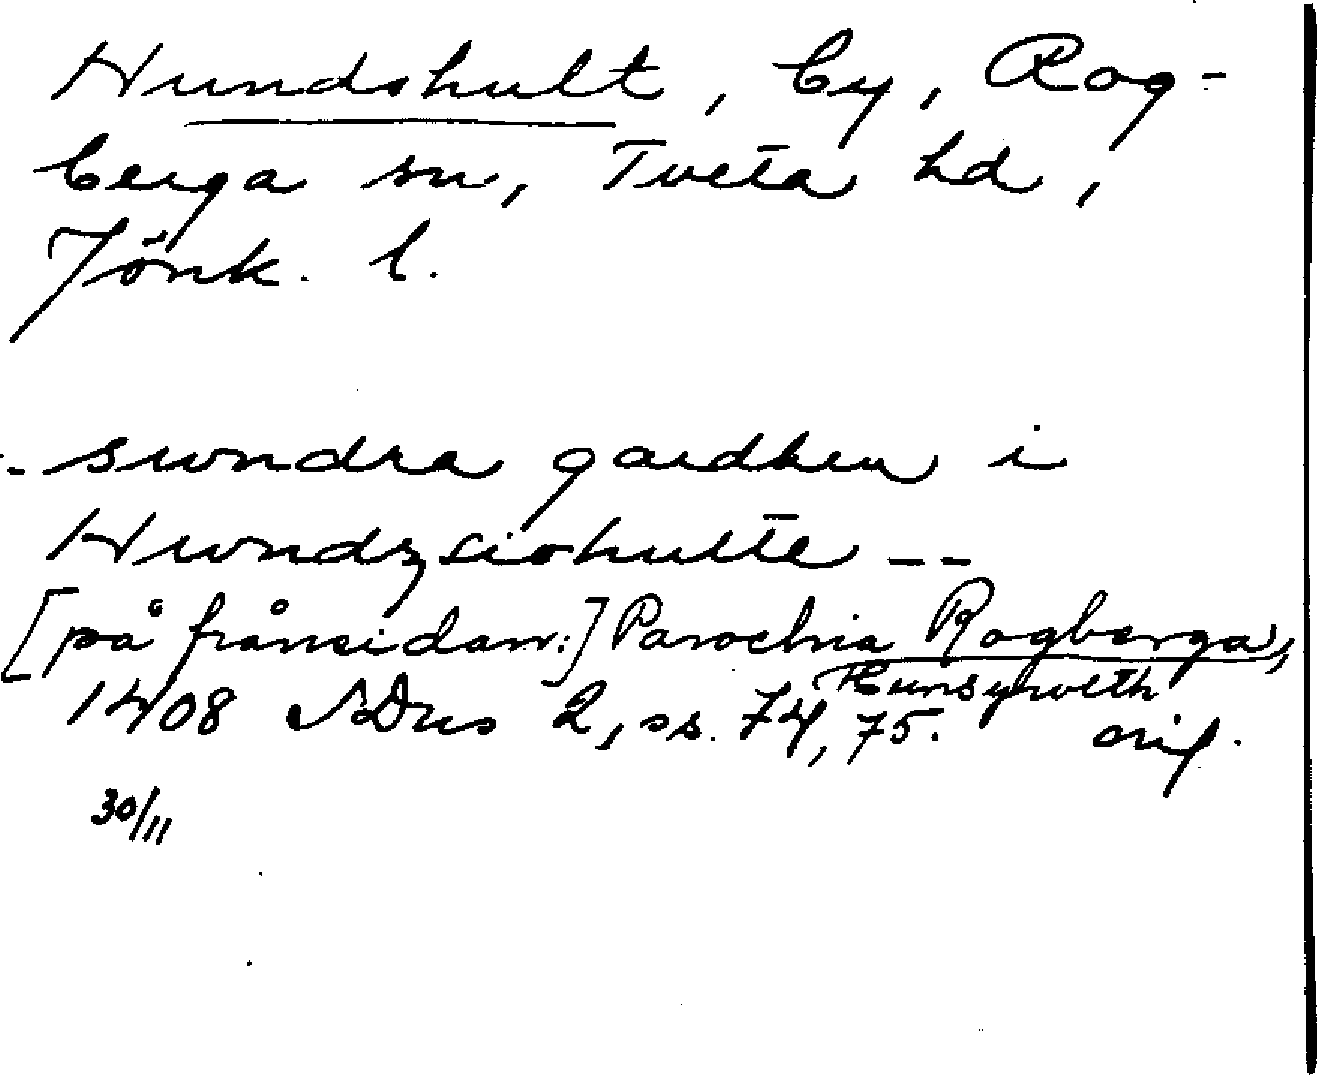 Hundshult, by, Rog-
berga sn, Tveta hd,
Jönk. l.
-- swndra gardhen i
Hwndzsiohulte --
[på frånsidan:] Parochia Rogberga,
Hunsyhwlth
1408 SDns 2, ss. 74, 75. orig.
30/11